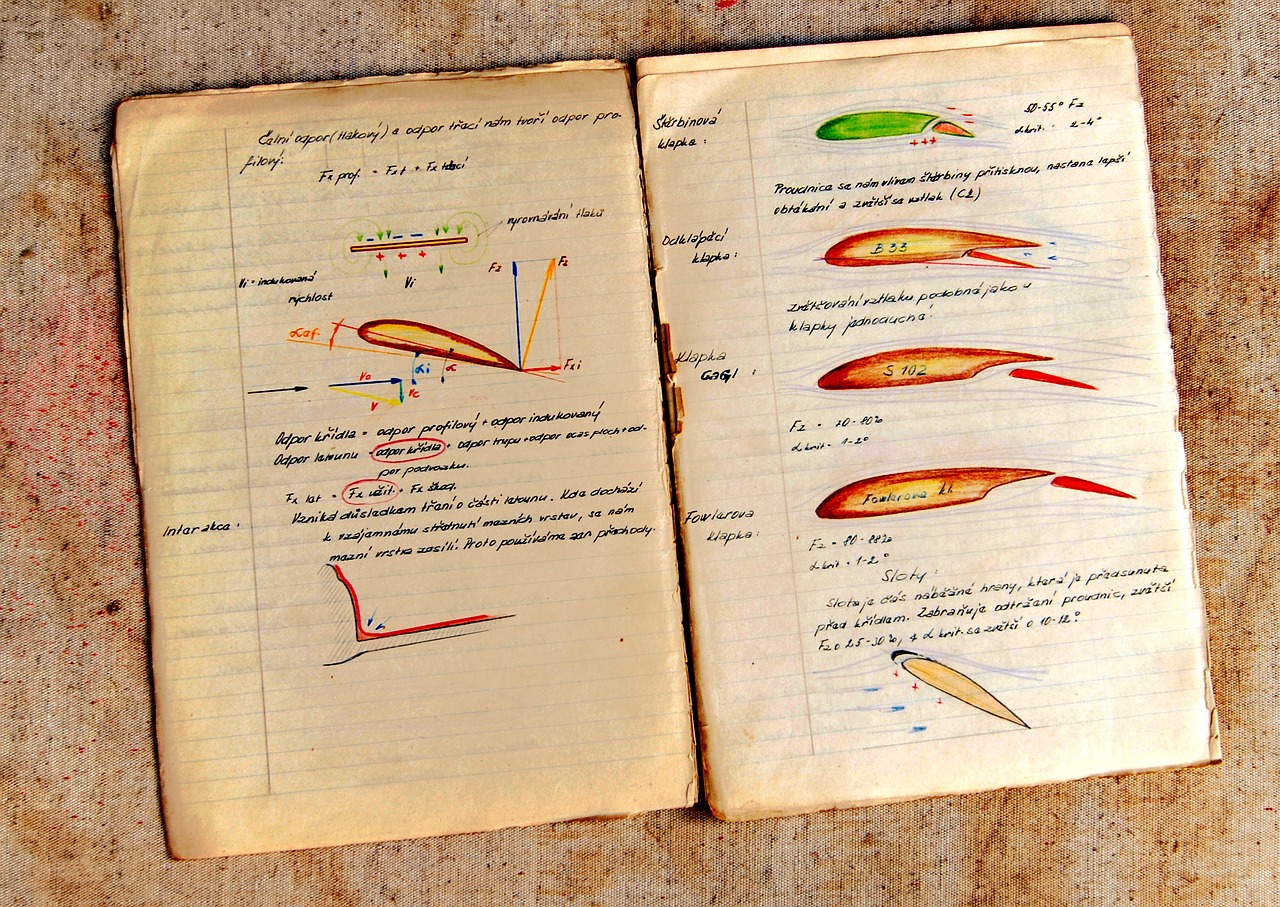 Čelní odpor (tlakový) a odpor třací nám tvoří odpor pro-
filový:
Fx prof. = Fxt + Fx třecí
vyrovnávání tlaků
Vi
Vi = indukovaná
rychlost
Fz
Fz
α ef.
αi
α
Fxi
Vo
Vc
V
Odpor křídla = odpor profilový + odpor indukovaný
Odpor letounu = odpor křídla + odpor trupu + odpor ocas ploch + od-
por podvozku.
Fx let = Fx užit. + Fx škod.
Interakce:
Vzniká důsledkem tření o části letounu. Kde dochází
k vzájemnému střetnutí mezních vrstev, se nám
mezní vrstva zesílí. Proto používáme přechody.
Štěrbinová
klapka:
50-55° Fz
α krit. 2-4°
Proudnice se nám vlivem štěrbiny přitisknou, nastane lepší
obtékání a zvětší se vztlak (Cz)
Odklápěcí
klapka:
B 33
zvětšování vztlaku podobná jako u
klapky jednoduché!
Klapka
GaGl :
S 102
Fz = 70-80%
α krit = 1-2°
Fowlerova
klapka:
Fowlerova kl.
Fz = 80-88%
α krit = 1-2°
Sloty:
Slota je část náběžné hrany, která je předsunuta
před křídlem. Zabraňuje odtržení proudnic, zvětší
Fz o 25-30%, α krit. se zvětší o 10-12°